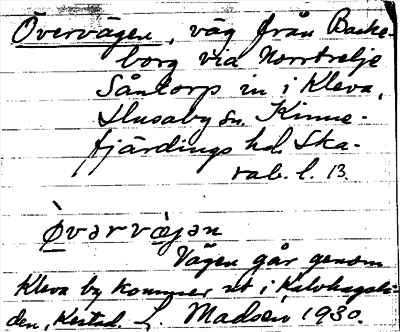 Övervägen, väg från Backe-
borg via Norrtrelje
Såntorp in i Kleva,
Husaby sn. Kinne-
fjärdings hd. Ska-
rab. l. 13.
Vägen går genom
Kleva by kommer ut i
den, Kestad. L. Madsén 1930.